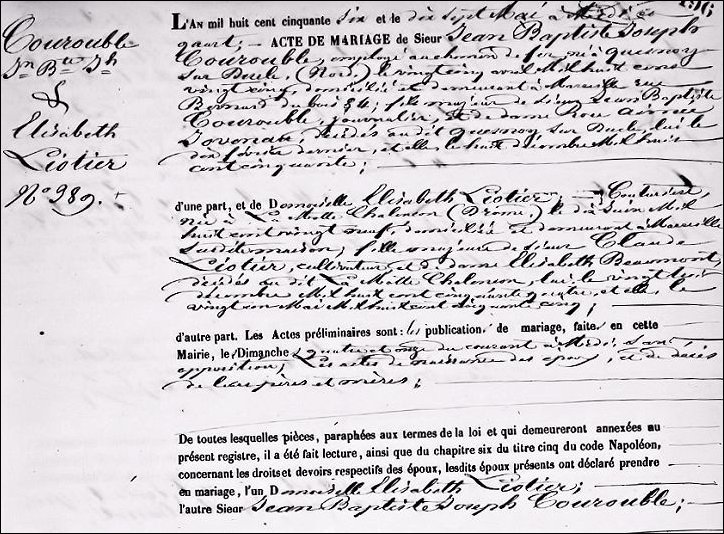 196
Courouble
Jn Bte Jh
&
Elisabeth
Liotier
No 389.
L'AN mil huit cent cinquante six et le dix sept Mai à Midi et
quart; — ACTE DE MARIAGE de Sieur Jean Baptiste Joseph
Courouble, employé au chemin de fer, né à Quesnoy
sur Deule, (Nord,) le vingt cinq avril Mil huit cent
vingt cinq, domicilié et demeurant à Marseille rue
Bernard du bois, fils majeur de Sieur Jean Baptiste
Courouble, journalier, et de dame Rose Aimée
décédés au dit Quesnoy, sur Deule, lui le
dernier, et elle le huit décembre Mil huit
cent cinquante;
d'une part, et de Demoiselle Elisabeth Liotier, Couturière,
née à La Motte Chalençon (Drome,) le dix Juin Mil
huit cent vingt neuf, domiciliée et demeurant à Marseille
susdite maison, fille majeure de Sieur Claude
Liotier, cultivateur, et de dame Elisabeth Beaumont,
décédés au dit La Motte Chalençon, lui, le vingt
décembre Mil huit cent cinquante quatre, et elle, le
vingt un Mai Mil huit cent cinquante cinq;
d'autre part. Les Actes préliminaires sont: les publications de mariage, faites en cette
Mairie, le Dimanche quatre et onze du courant à Midi, sans
opposition; Les actes de naissance des époux, et de décès
de leurs pères et mères;
De toutes lesquelles pièces, paraphées aux termes de la loi et qui demeureront annexées au
présent registre, il a été fait lecture, ainsi que du chapitre six du titre cinq du code Napoléon,
concernant les droits et devoirs respectifs des époux, lesdits époux présents ont déclaré prendre
en mariage, l'un Demoiselle Elisabeth Liotier;
l'autre Sieur Jean Baptiste Joseph Courouble;